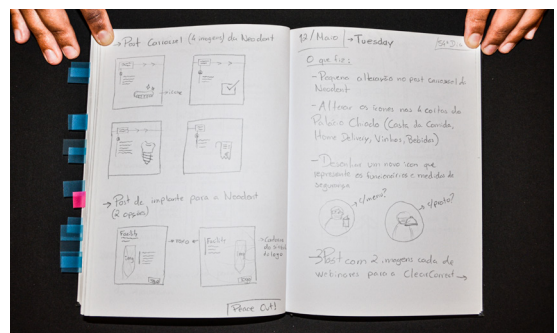 → Post Carrossel (4 imagens) da Neodent
→ Post de implante para a Neodent
(2 opções)
Facility
Facility
Peace Out!
12/Maio | → Tuesday
O que fiz:
- Pequena alteração no post carrossel da
Neodent
- Alinear os ícones nas 6 cartas do
Palácio Chiado (Carta da Comida,
Home Delivery, Vinhos, Bebidas)
- Desenhar um novo icon que
represente os funcionários c medidas de
segurança
c/menu?
c/prato?
- 3 Post com 2 imagens cada de
webinares para a ClearCorrect →